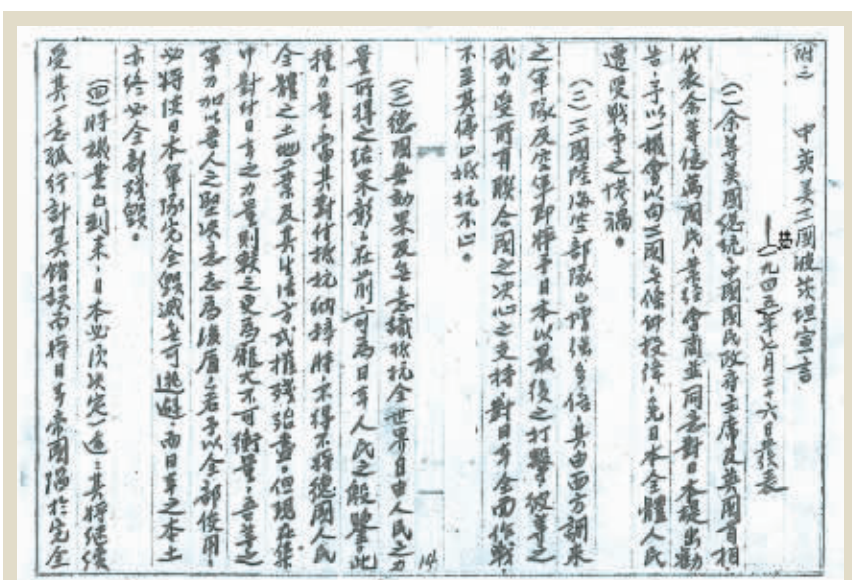 附三 中英美三國波茨坦宣言
一九四五年七月二十六日發表
(一)余等美國總統、中國國民政府主席及英國首相,
代表余等億萬國民,業經會商並同意對日本提出勸
告,予以一機會以向三國無條件投降,免日本全體人民
遭受戰爭之慘禍。
(二)三國陸海空部隊已增強多倍,其由西方調來
之軍隊及空軍即將予日本以最後之打擊,彼等之
武力受所有聯合國之決心之支持,對日本全面作戰,
不至其停止抵抗不止。
14
(三)德國無効果及無意識抵抗全世界自由人民之力
量所得之結果彰々在前,可為日本人民之殷鑒,此
種力量,當其對付抵抗納粹時,不得不將德國人民
全體之土地業及其生活方式摧殘殆盡。但現在集
中對付日本之力量則較之更為龐大不可衡量,吾等之
軍力加以吾人之堅決意志為後盾,若予以全部使用,
必將使日本軍隊完全毀滅無可逃避,而日本之本土
亦終必全部殘毀。
(四)時機業已到來,日本必須決定一途:其將繼續
受其一意孤行計算錯誤而將日本帝國陷於完全